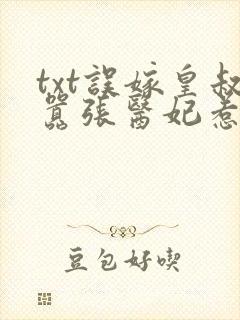 txt誤嫁皇叔
囂張醫妃惹
豆包好喫